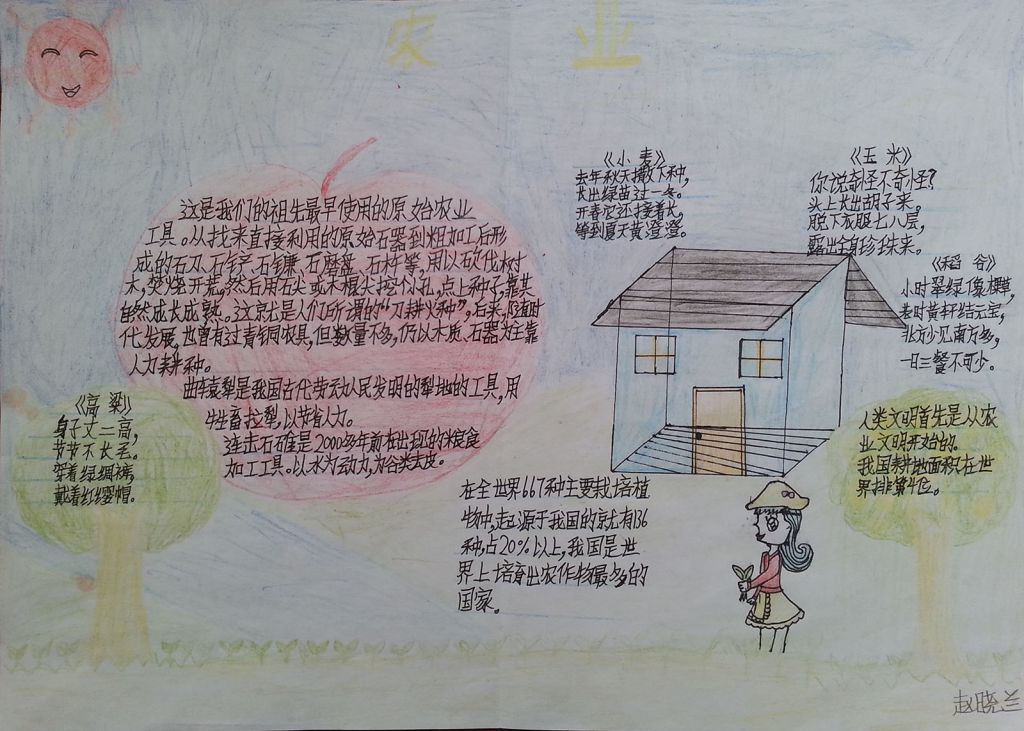 农 业
这是我们的祖先最早使用的原始农业
工具。从找来直接利用的原始石器到粗加工后形
成的石刀、石铲、石镰、石磨盘、石杵等,用以砍伐树
木,焚烧开荒,然后用石头或木棍尖挖个小孔,点上种子,靠其
自然成长成熟。这就是人们所谓的“刀耕火种”,后来,随着时
代发展,也曾有过青铜农具,但数量不多,仍以木质、石器为主靠
人力耕种。
曲辕犁是我国古代劳动人民发明的犁地的工具,用
牲畜拉犁,以节省人力。
连击石碓是2000多年前有出现的粮食
加工工具。以水为动力,为谷类去皮。
《高 粱》
身子丈二高,
节节不长毛。
穿着绿绸裤,
戴着红缨帽。
《小 麦》
去年秋天撒下种,
长出绿苗过一冬。
开春它还接着长,
等到夏天黄澄澄。
《玉 米》
你说奇怪不奇怪?
头上长出胡子来,
脱下衣服七八层,
露出全身珍珠来。
《稻 谷》
小时翠绿像棵草,
老时黄籽结元宝,
北方少见南方多,
一日三餐不可少。
人类文明首先是从农
业文明开始的。
我国耕地面积在世
界排第4位。
在全世界667种主要栽培植
物中,起源于我国的就有136
种,占20%以上,我国是世
界上培育出农作物最多的
国家。
赵晓兰